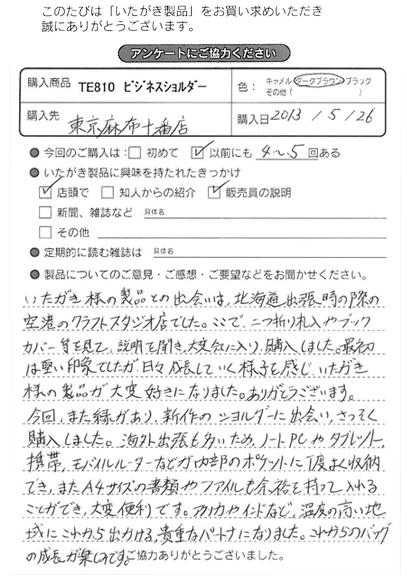 このたびは「いたがき製品」をお買い求めいただき
誠にありがとうございます。
アンケートにご協力ください
購入商品 TE810 ビジネスショルダー 色： キャメル ダークブラウン ブラック
その他（ ）
購入先 東京麻布十番店 購入日 2013 / 5 / 26
● 今回のご購入は： 初めて 以前にも 4〜5 回ある
● いたがき製品に興味を持たれたきっかけ
店頭で 知人からの紹介 販売員の説明
新聞、雑誌など 具体名
その他
● 定期的に読む雑誌は 具体名
● 製品についてのご意見・ご感想・ご要望などをお聞かせください。
いたがき様の製品との出会いは、北海道出張時の際の
空港のクラフトスタジオ店でした。ここで、二つ折り札入やブック
カバー等を見て、説明を聞き、大変気に入り、購入しました。最初
は堅い印象でしたが日々成長していく様子を感じ いたがき
様の製品が大変好きになりました。ありがとうございます。
今回、また縁があり、新作のショルダーに出会い、さっそく
購入しました。海外出張も多いため、ノートPCやタブレット、
携帯、モバイルルーターなどが内部のポケットに丁度よく収納
でき、またA4サイズの書類やファイルも余裕を持って入れる
ことができ、大変便利です。アフリカやインドなど、温度の高い地
域にこれから出かける、貴重なパートナになりました。これからのバッグ
の成長が楽しみです。ご協力ありがとうございました。